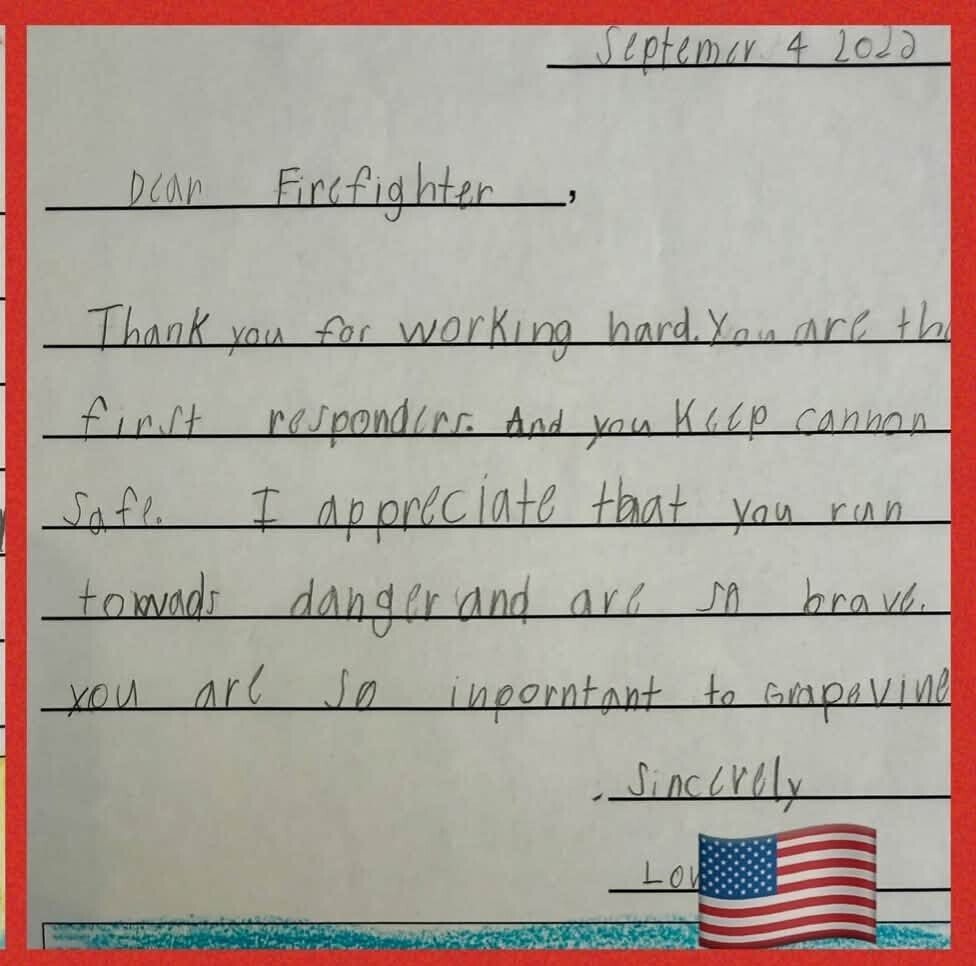 Septemer 4 2022
Dear Firefighter,
Thank you for working hard. You are the
first responders. And you keep cannon
safe. I appreciate that you run
towads danger and are so brave.
you are so inporntant to Grapevine
Sincerely
Lov